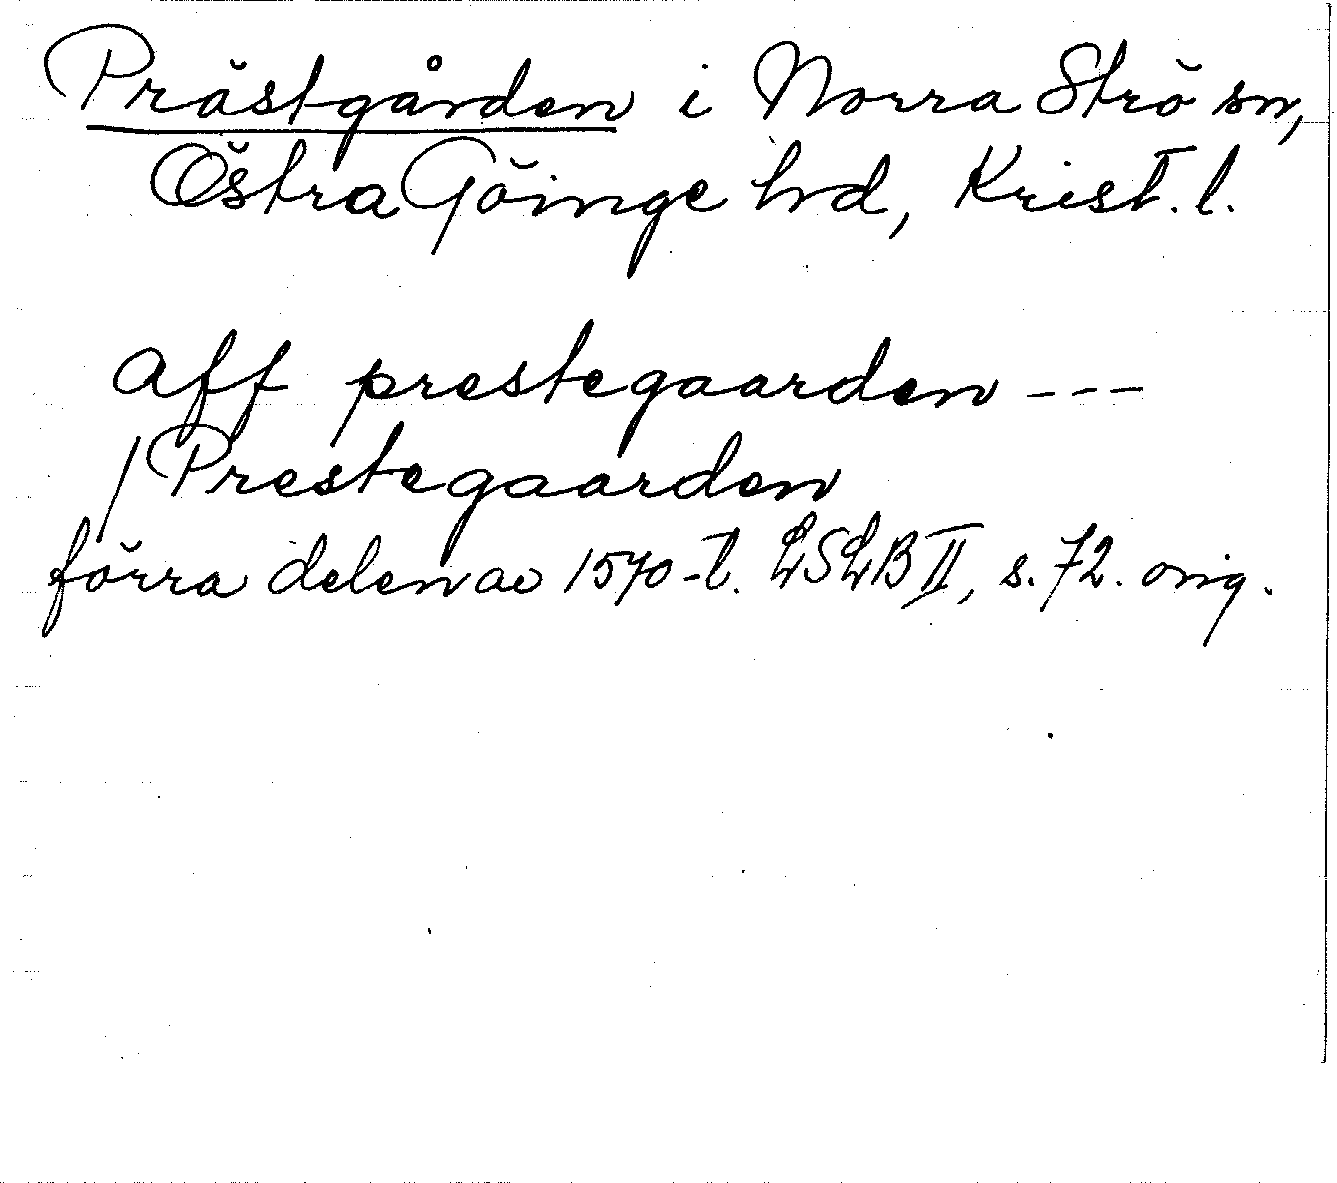 Prästgården i Norra Strö sn,
Östra Göinge hd, Krist. l.
aff prestegaarden ---
/ Prestegaarden
förra delen av 1570-t. LSLB II, s. 72. orig.